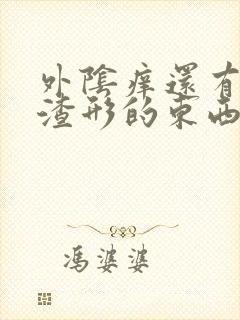 外陰痒還有
渣形的東西
馮婆婆